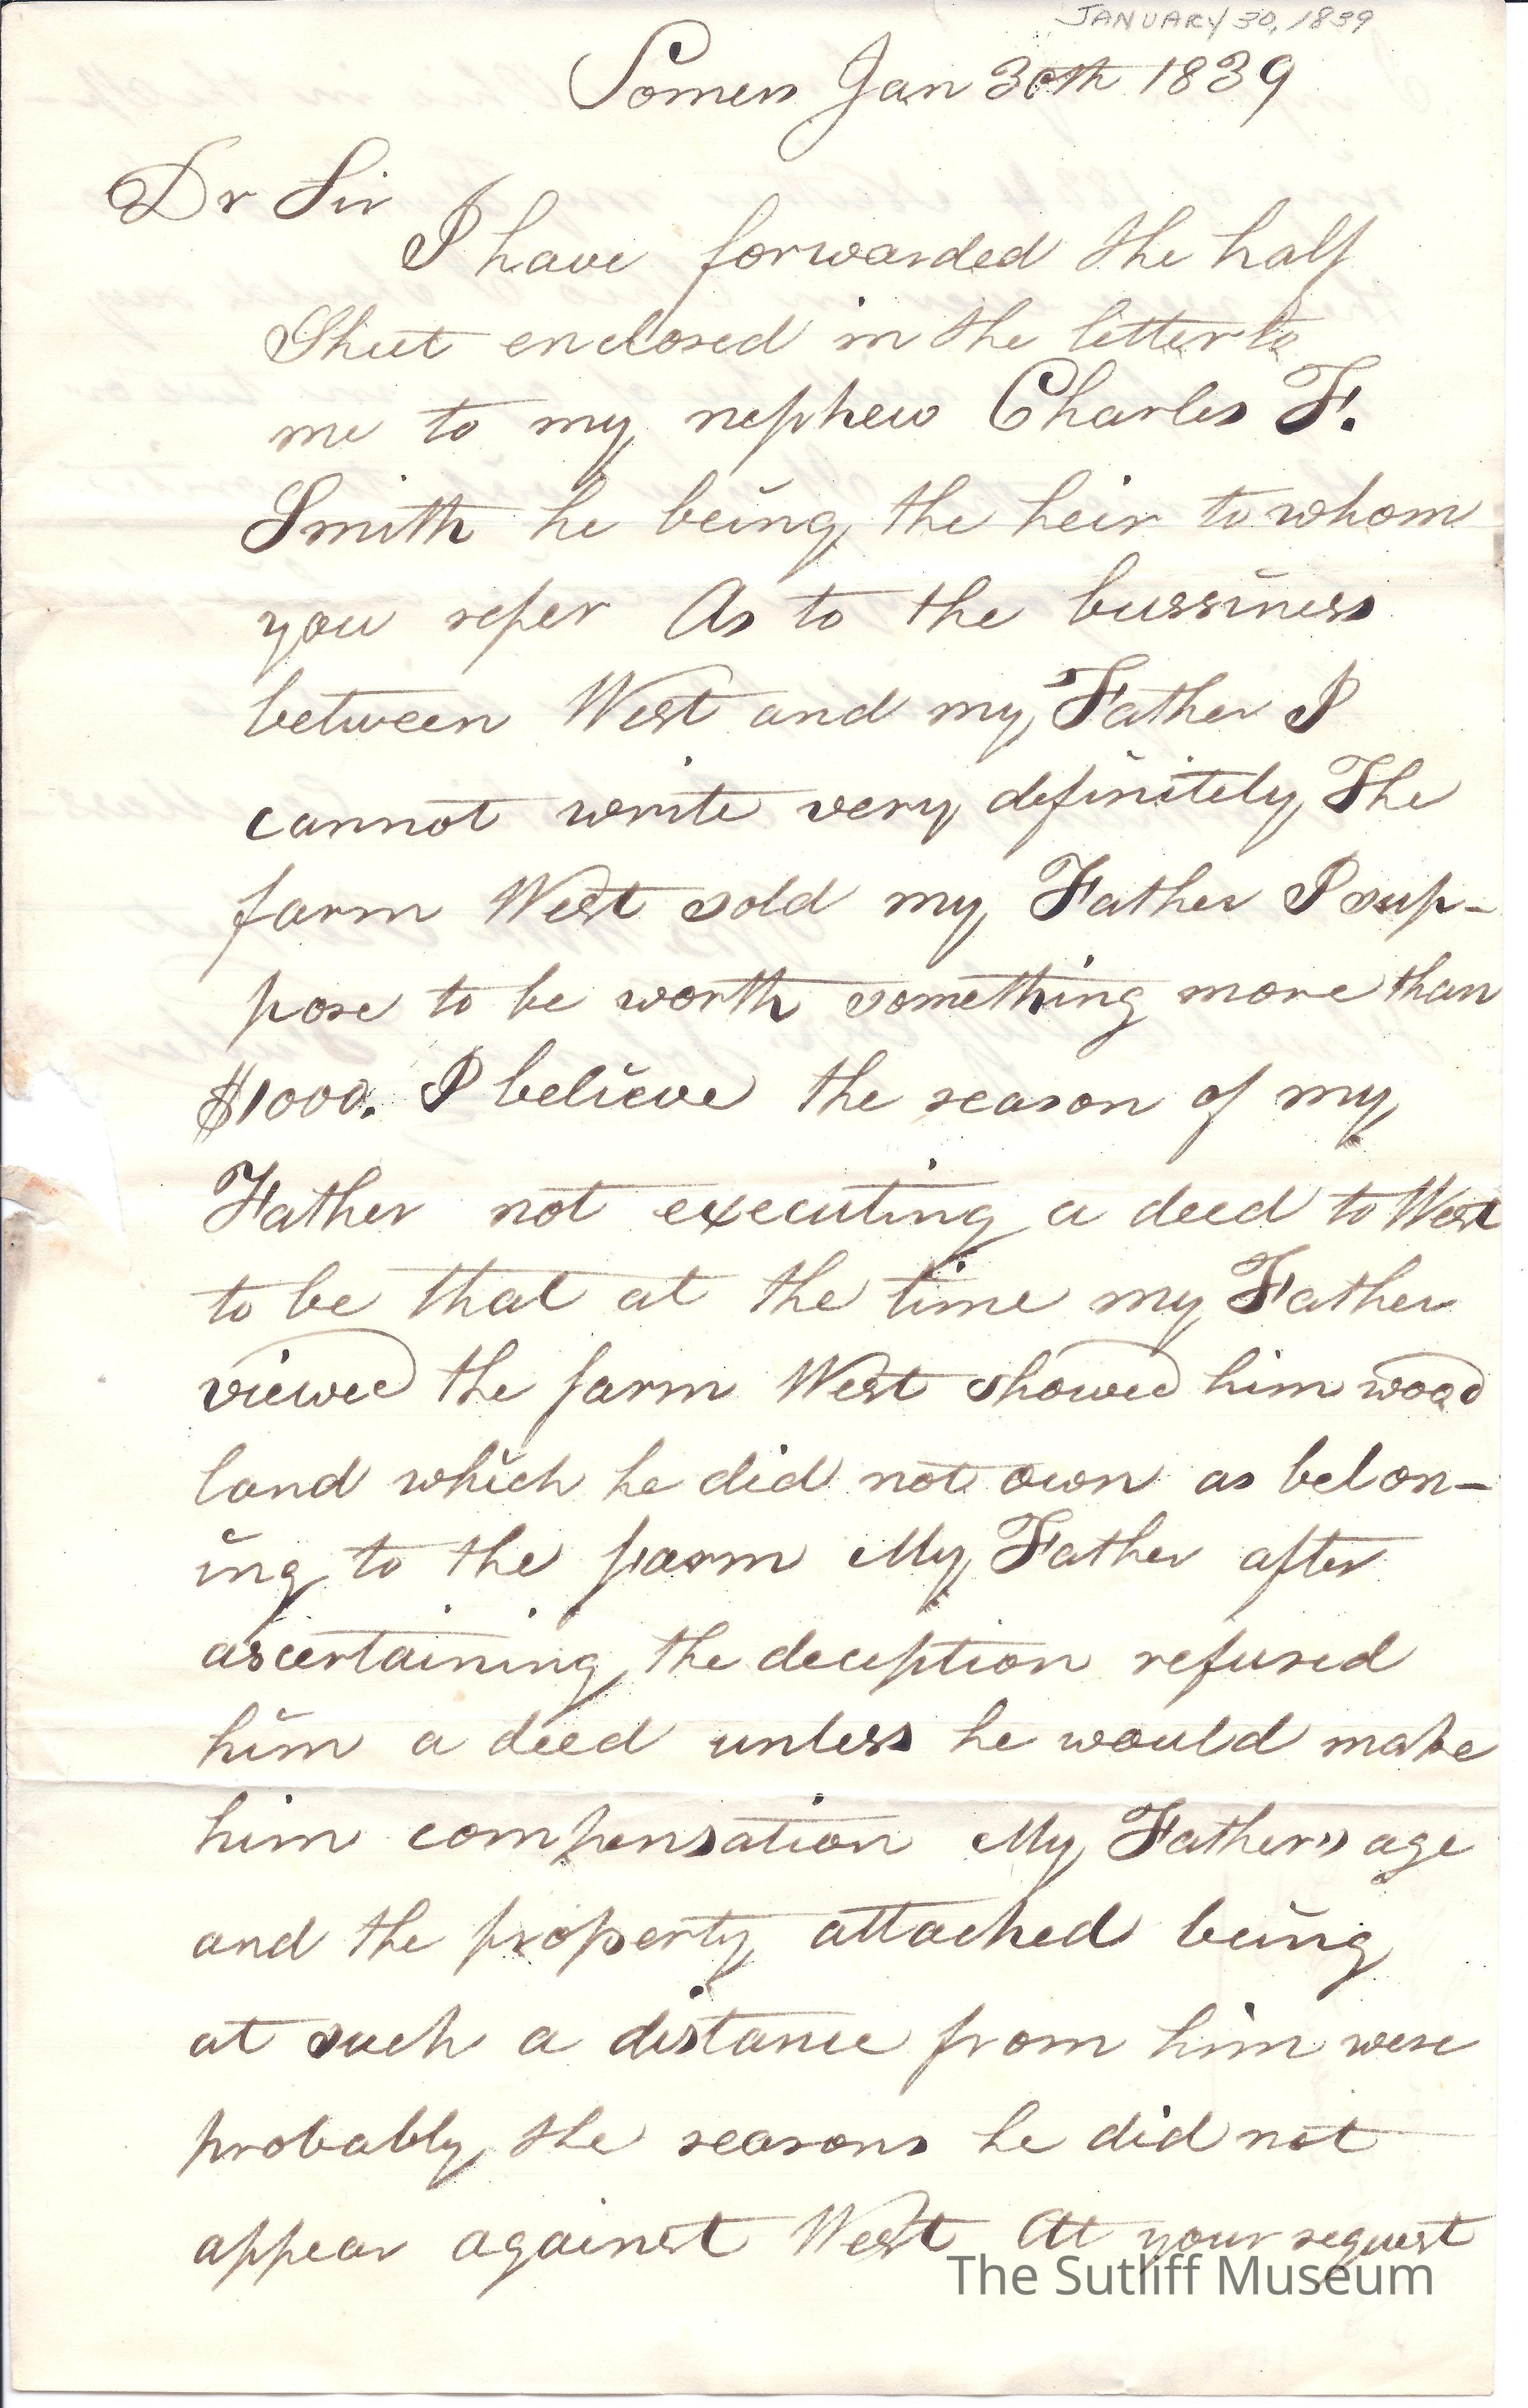 JANUARY 30, 1839
Somers Jan 30th 1839
Dr Sir
I have forwarded the half
Sheet enclosed in the letter to
me to my nephew Charles F.
Smith he being the heir to whom
you refer As to the bussiness
between West and my Father I
cannot write very definitely The
farm West sold my Father I sup-
pose to be worth something more than
$1000. I believe the reason of my
Father not executing a deed to West
to be that at the time my Father
viewed the farm West showed him wood
land which he did not own as belon-
ing to the farm My Father after
ascertaining the deception refused
him a deed unless he would make
him compensation My Father's age
and the property attached being
at such a distance from him were
probably the reasons he did not
appear against West At your request
The Sutliff Museum